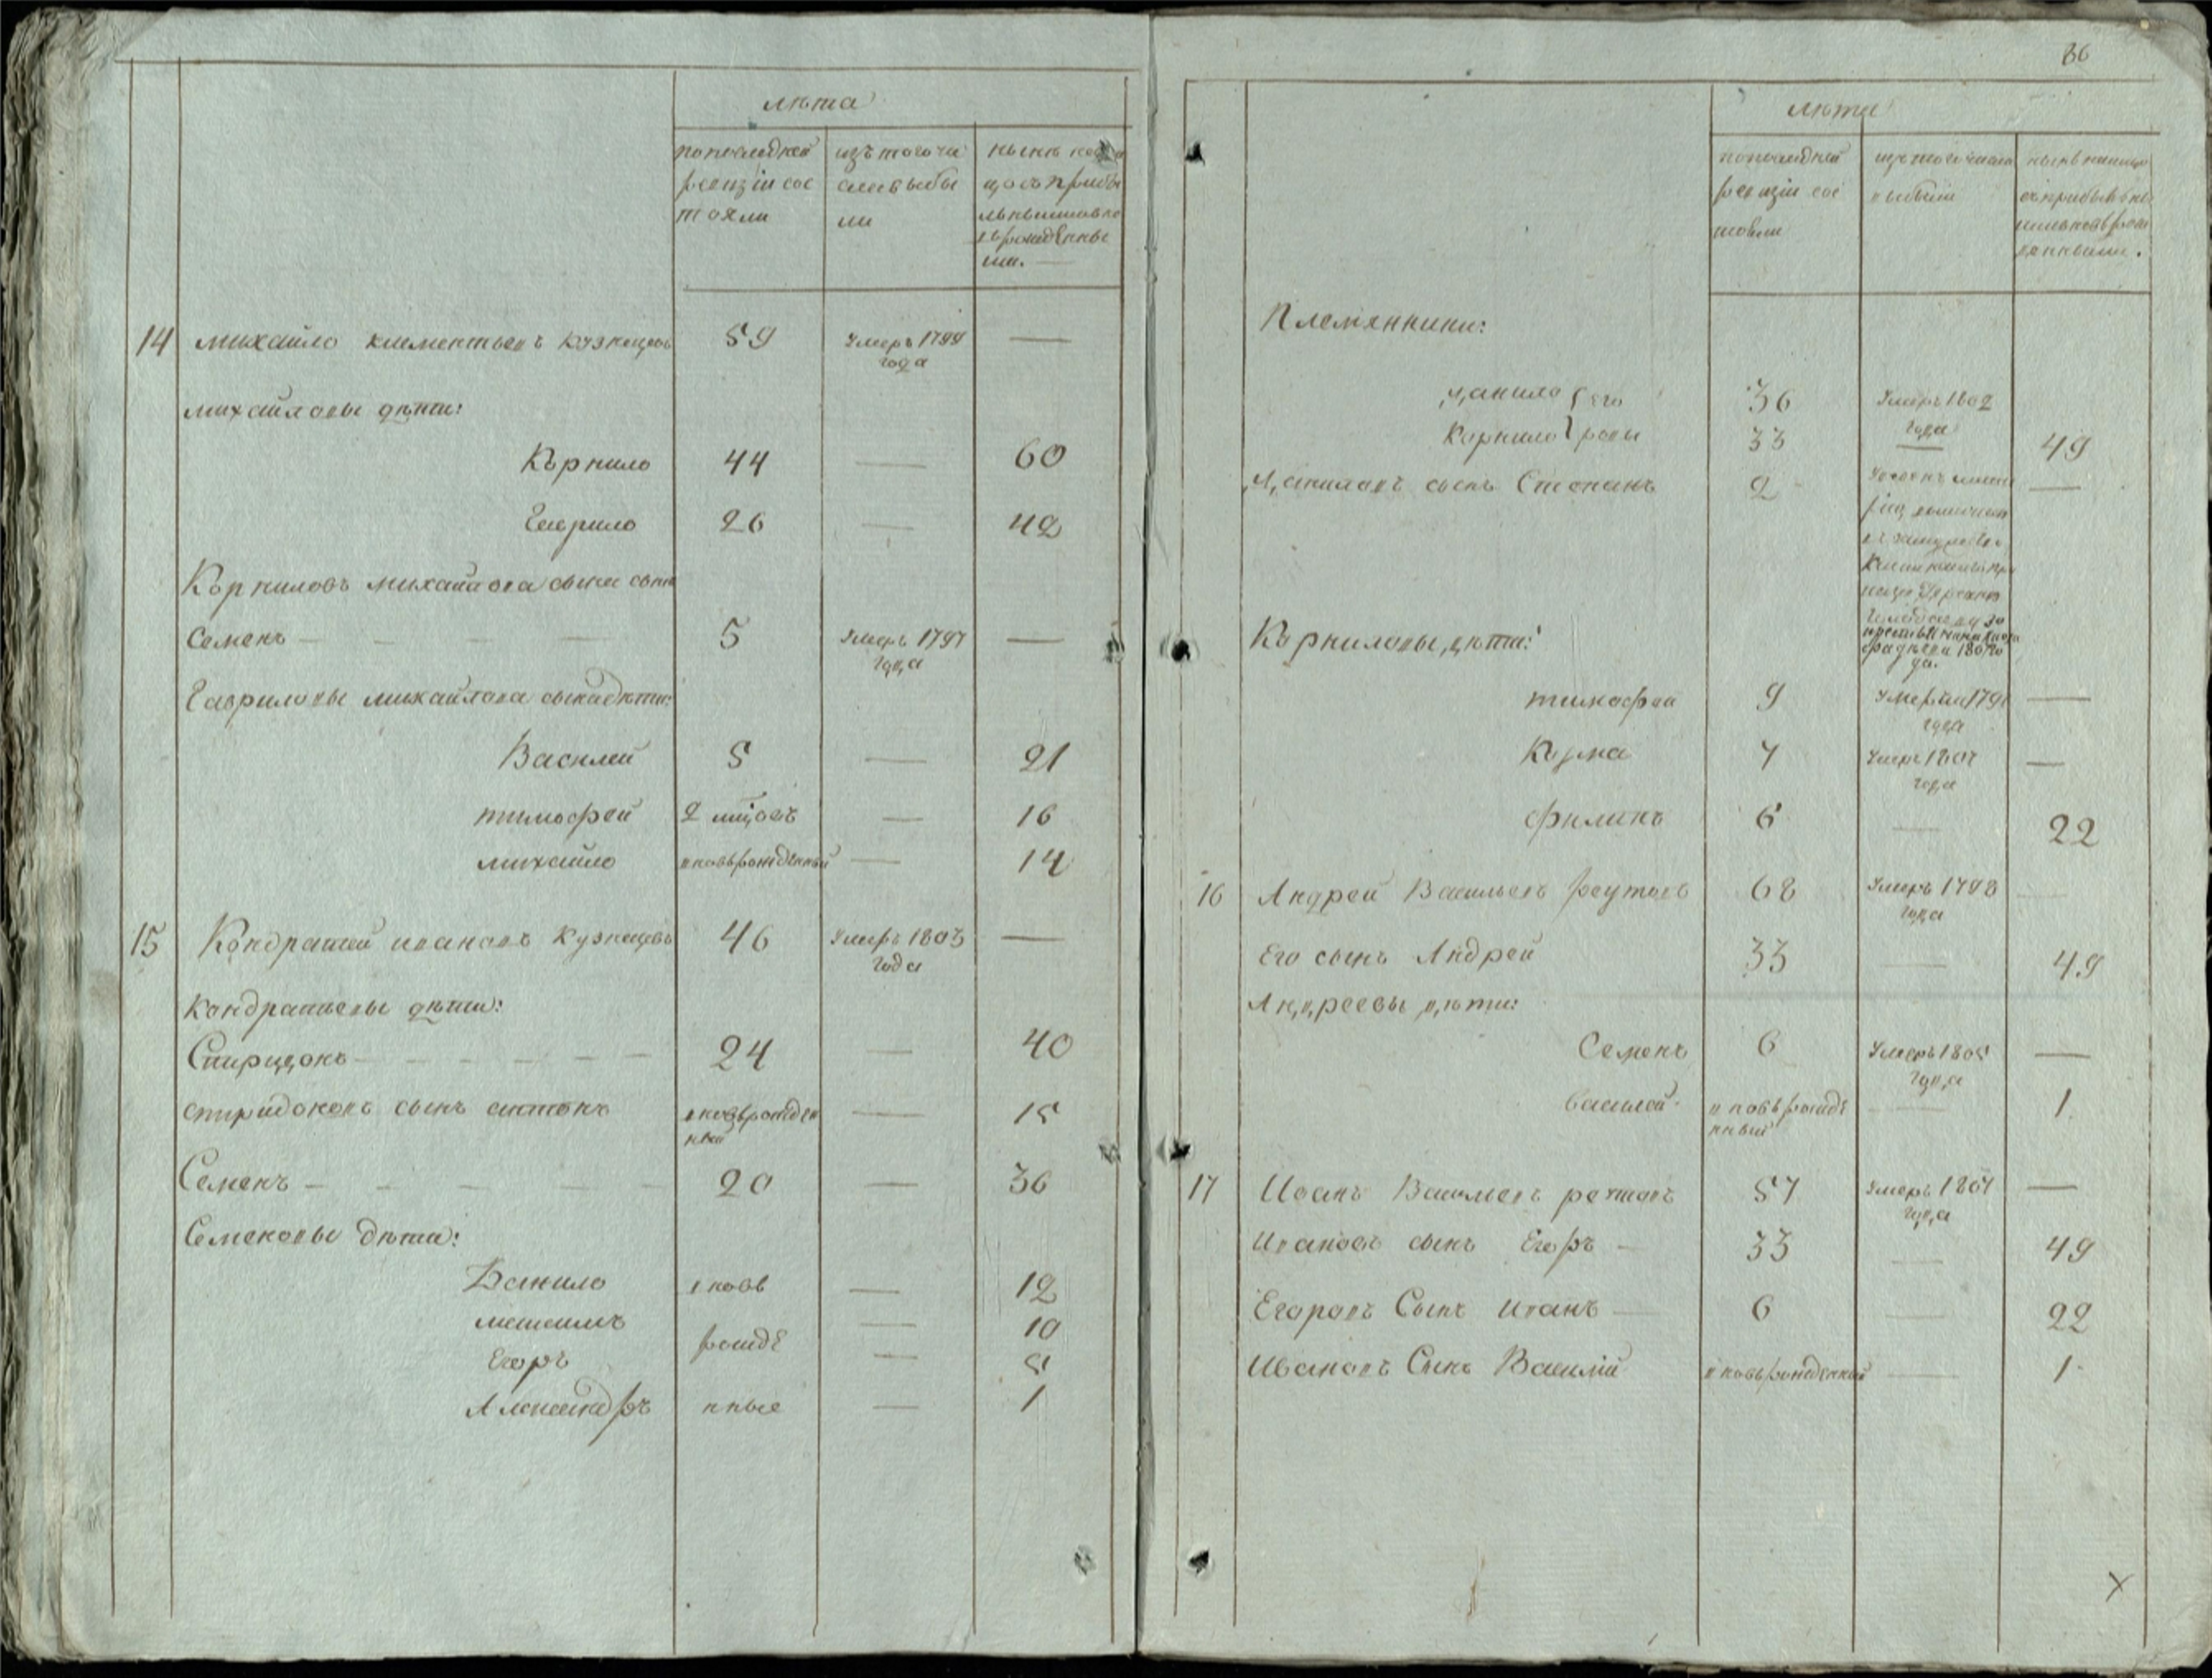 лѣта
попоследней
ревизіи сос
тояли
изътогочи
славыбы
ли
нынѣ
14 михайло климентьевъ кузнецовъ 59 Умеръ 1799 —
года
михайловы дѣти:
Кърнило 44 — 60
Гаврило 26 — 42
Кърниловъ михайлова сына сынъ
Семенъ — 5 Умеръ 1797 —
года
Гавриловы михайлова сынадѣти:
Василей 5 — 21
тимофей 2 мцовъ — 16
михайло вновьрожденный — 14
15 Кондратей ивановъ кузнецовъ 46 Умеръ 1803 —
года
кондратьевы дѣти:
Спиридонъ — 24 — 40
спиридоновъ сынъ антонъ вновьрожден — 15
ный
Семенъ — 20 — 36
Семеновы дѣти:
Данило вновь — 12
максимъ — 10
рожде
Егоръ — 5
Александръ нные — 1
86
лѣта
попоследней
ревизіи сос
тояли
изътогочисла
выбыли
Племянники:
данило его 36 Умеръ 1802
года
Корнило ровы 33 — 49
Даниловъ сынъ Степанъ 2 —
Корниловы дѣти:
тимофей 9 —
года
Кузма 7 —
года
филипъ 6 — 22
16 Андрей Васильевъ реутовъ 68 Умеръ 1798 —
года
Его сынъ Андрей 33 — 49
Андреевы дѣти:
Семенъ 6 Умеръ 1805 —
года
василей вновьрожде — 1
нный
17 Иванъ Васильевъ реутовъ 57 Умеръ 1807 —
года
Ивановъ сынъ Егоръ — 33 — 49
Егоровъ Сынъ иванъ — 6 — 22
Ивановъ Сынъ Василій вновьрожденный — 1